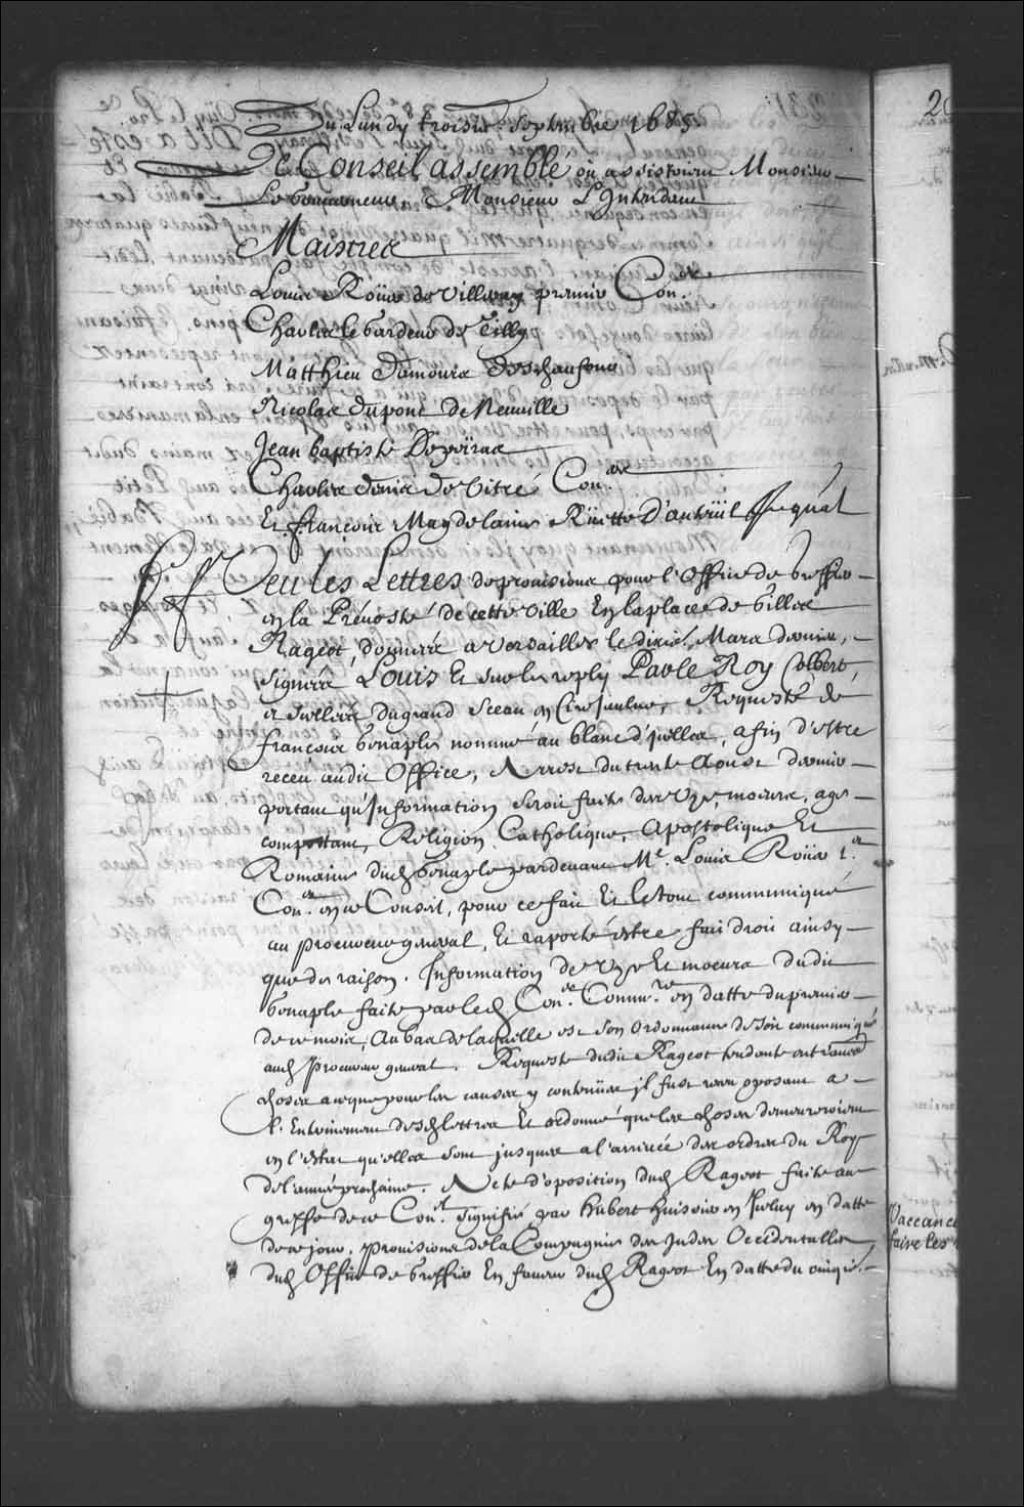 Du Lundy troisie. Septembre 1685.
Le Conseil assemblé où assistoient Monsieur
Le Gouverneur & Monsieur L'Intendant
Maistres
Louis Roüer de Villeray premier Con.er
Charles le Gardeur de Tilly
Matthieu Damours Deschaufour
Nicolas Dupont de Neuville
Jean baptiste Depeiras
Charles denis de Vitré Con.ers
Et francois Magdelaine Rüette D'auteüil P. gnāl
Veu les Lettres de provisions pour l'Office de Greffier
en la Prévosté de cette Ville En la place de Gilles
Rageot, données a Versailles le dixie. Mars dernier,
signées Louis Et sur le reply Par le Roy Colbert,
et scellées du grand sceau en Cire jaulne, Requeste de
francois Genaple nommé au blanc d'jcelles, afin d'estre
receu audit Office, Arrest du trente Aoust dernier
portant qu'Information seroit faite des vye, moeurs, age
comportans, Réligion Catholique, Apostolique Et
Romaine dud. Genaple pardevant Me. Louis Roüer 1.er
Con.er en ce Conseil, pour ce fait Et Le tout communiqué
au procureur general, Et raporté estre fait droit ainsy
que de raison. Information de vye Et moeurs dudit
Genaple faite par led. Con.er Commre. en datte du premier
de ce mois, Au bas de laquelle est son Ordonnance de soit communiqué
aud. procureur general. Requeste dudit Rageot tendante entr'autres
choses a ce que pour les causes y contenües jl fust receu oposant a
l'Enterinement desd. lettres Et ordonné que les choses demeureroient
en l'estat qu'elles sont jusques a l'arrivée des ordres du Roy
de l'année prochaine. Acte d'oposition dud. Rageot faite au
greffe de ce Con.el signifié par hubert huissier en jceluy en datte
de ce jour, provisions de la Compagnie des Indes Occidentalles
dud. Office de Greffier En faveur dud. Rageot En datte du
Vaccance
faire les